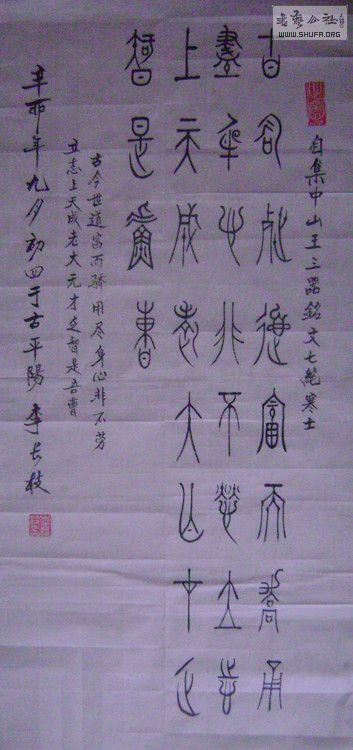 书艺公社
WWW.SHUFA.ORG
自集中山王三器銘文七絕寒士
古今世道富而驕用
盡身心非不勞立志
上天成老大亡才乏
智是吾曹
古今世道富而驕用尽身心非不劳
立志上天成老大无才乏智是吾曹
辛丣年九月初四于古平陽李长枝